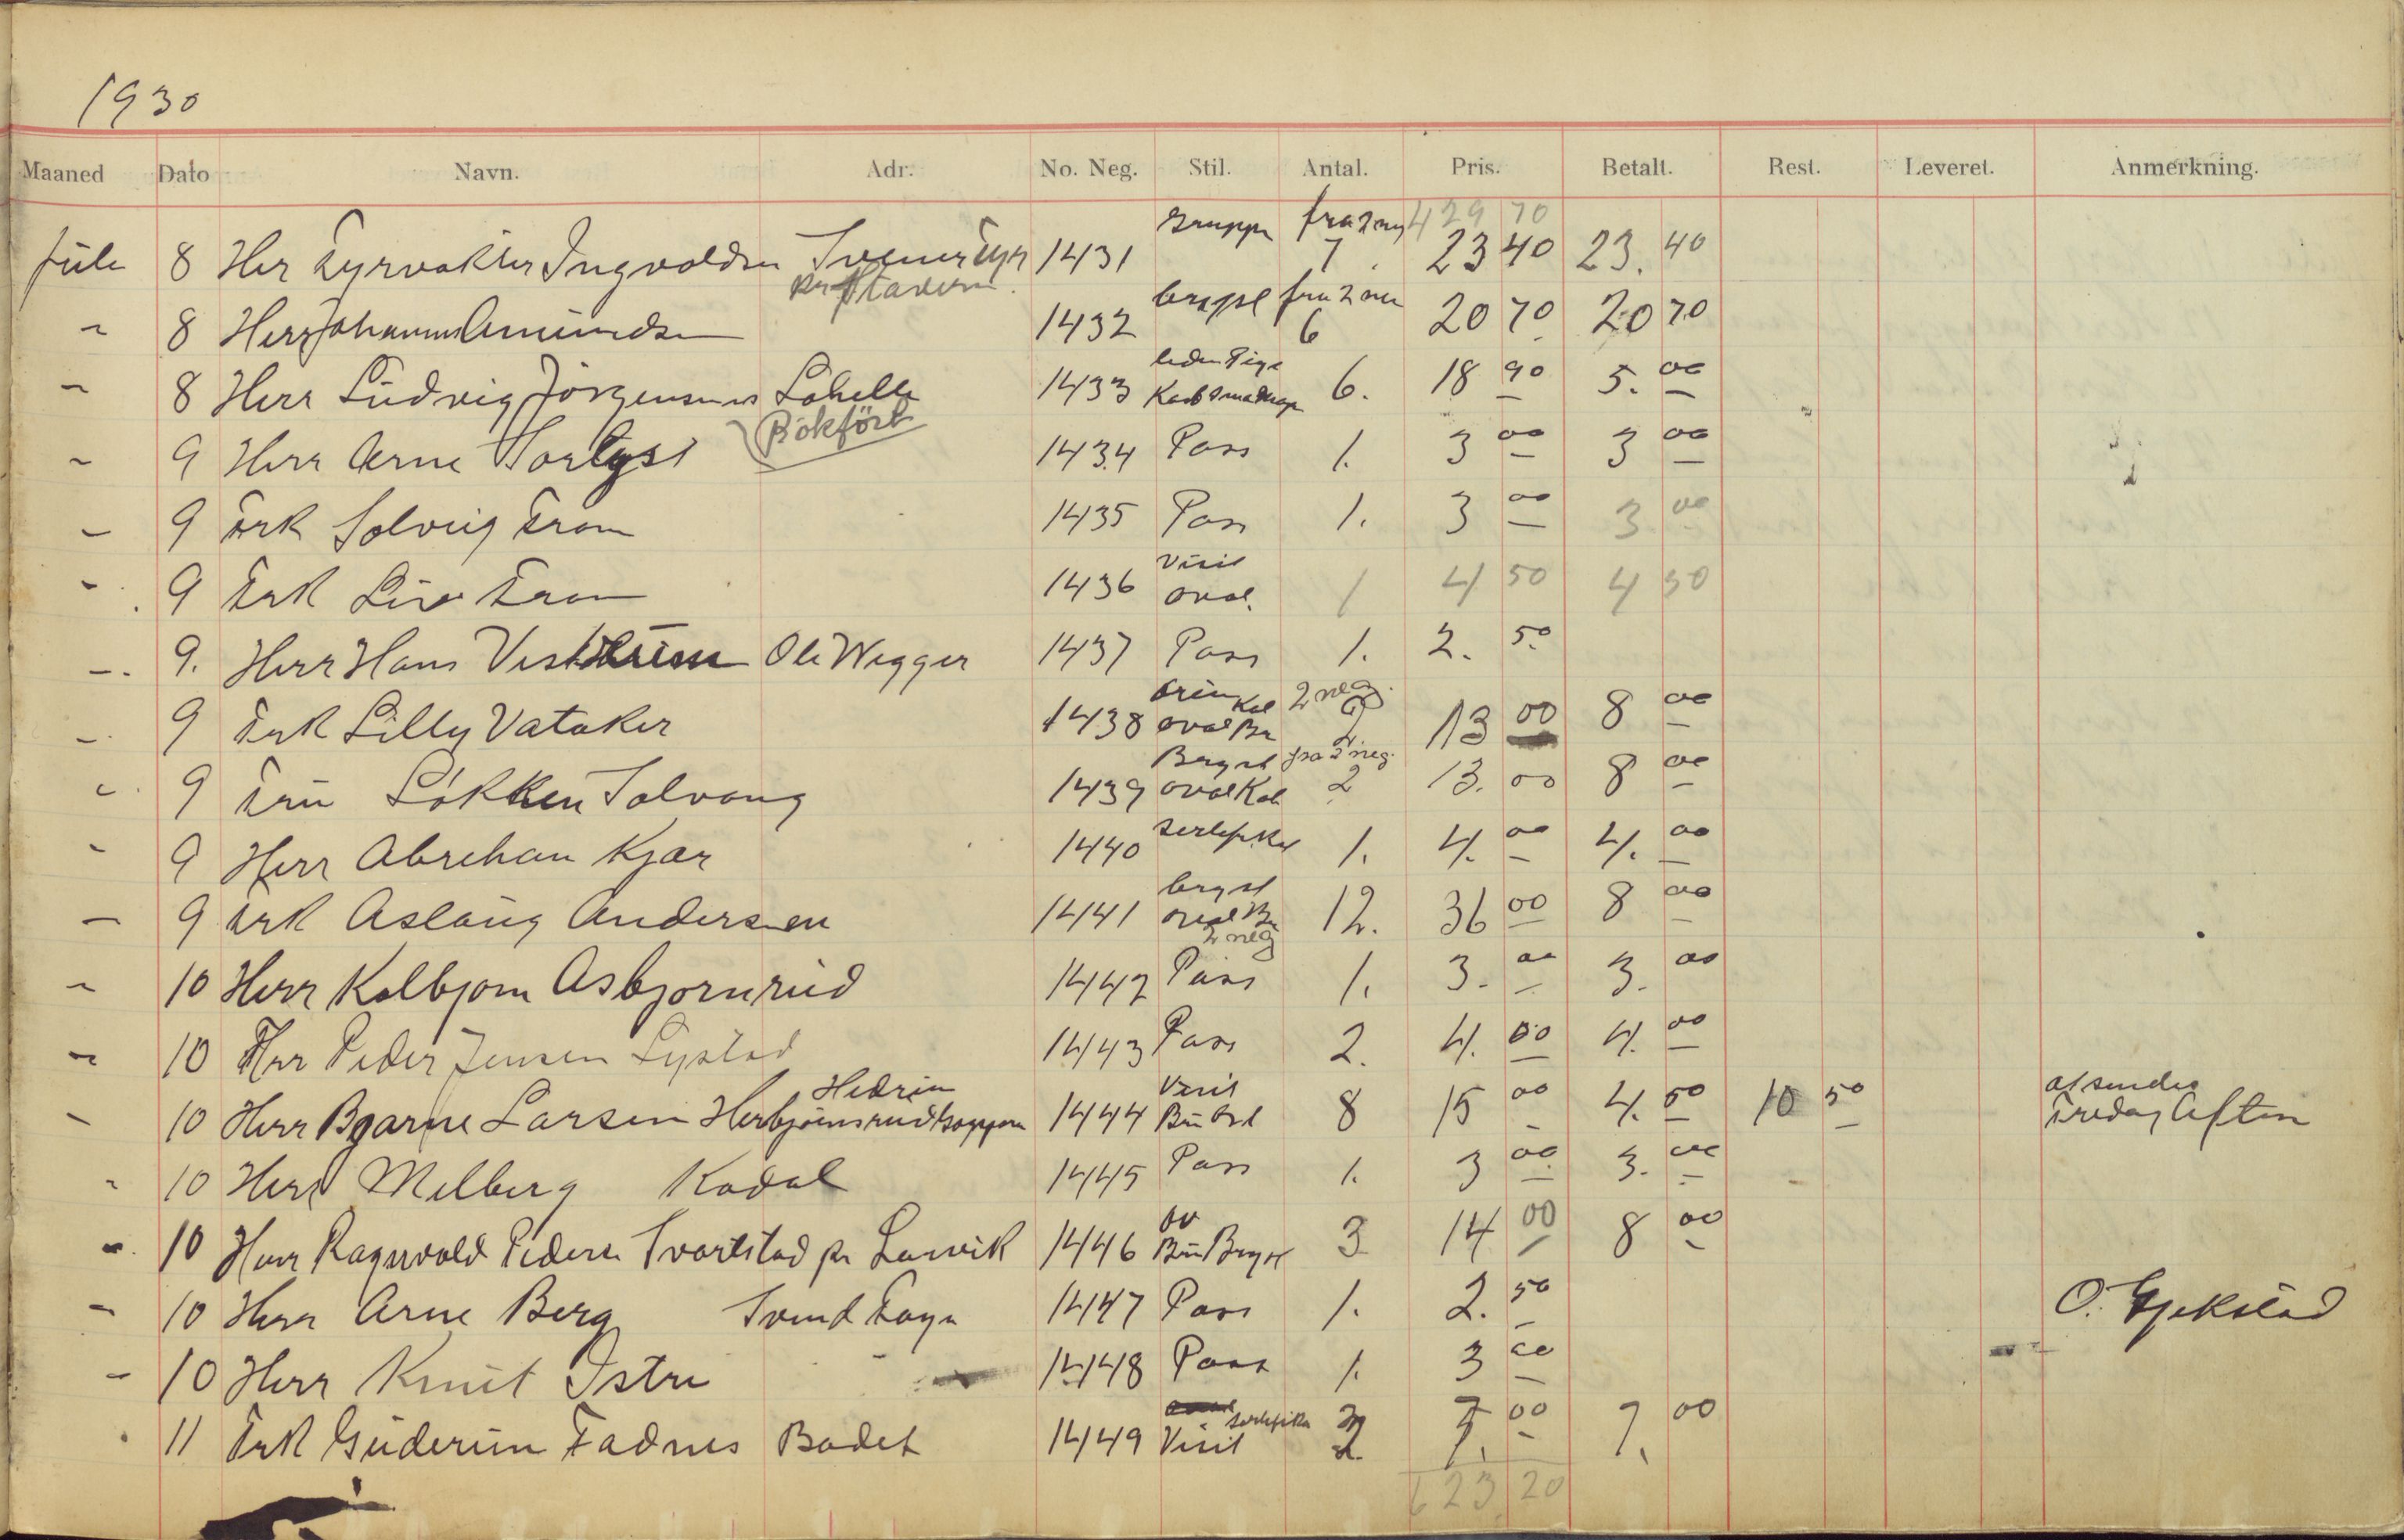 1930
Maaned Dato Navn. Adr. No. Neg. Stil. Antal. Pris. Betalt. Rest. Leveret. Anmerkning.
429 70
Juli 8 Her Fyrvakter Ingvoldsen Svenner Fyr 1431 Gruppe fra 2 neg 7. 23 40 23. 40
pr Stavern.
~ 8 Herr Johannes Amundsen 1432 brystb fra 2 neg 6 20 70 20 70
~ 8 Herr Ludvig Jörgensen Lahelle 1433 Kab 6. 18 90 5. 00
Bokfört
~ 9 Herr Arne Torlyst 1434 Pass 1. 3 00 3 00
- 9 Frk Solveig Fram 1435 Pass 1. 3 00 3 00
- 9 Frk Liv Fram 1436 Visit oval. 1 4 50 4 50
-. 9. Herr Hans Ole Wegger 1437 Pass 1. 2. 50
- 9 Frk Lilly Vataker 1438 Kab oval Br 2 neg. 13 00 8 00
- 9 Fru Lökken Solvang 1439 Bryst oval Kab fra 2 neg. 2 13. 00 8 00
- 9 Herr Abrehan Kjær 1440 1. 4. 00 4. 00
- 9 Frk Aslaug Andersen 1441 bryst oval Br 2 neg 12. 36 00 8 00
~ 10 Herr Kolbjorn Asbjornrud 1442 Pass 1. 3. 00 3. 00
~ 10 Herr Peder Jensen Lystad 1443 Pass 2. 4. 00 4. 00
- 10 Herr Bjarne Larsen Herbjörnsrud Hedrum 1444 Visit 8 15 00 4. 50 10 50 afsendes Fredag Aften
- 10 Herr Melberg Kodal 1445 Pass 1. 3 00 3. 00
-. 10 Herr Ragnvold Pedersen Tvarstad pr Larvik 1446 ov Bü Bryst 3 14 00 8 00
- 10 Herr Arne Berg Svend Foyn 1447 Pass 1. 2. 50 O. Gjekstad
- 10 Herr Knut Istre 1448 Pass 1. 3 00
. 11 Frk Guderun Fadnes Badet 1449 Visit 2 7. 00 7. 00
623 20